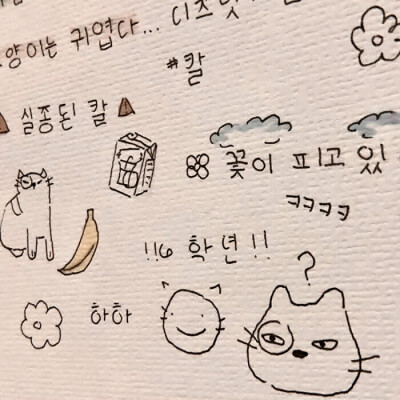 고양이는 귀엽다...
#칼
실종된 칼
꽃이 피고 있
ㅋㅋㅋㅋ
!!6학년!!
?
하하